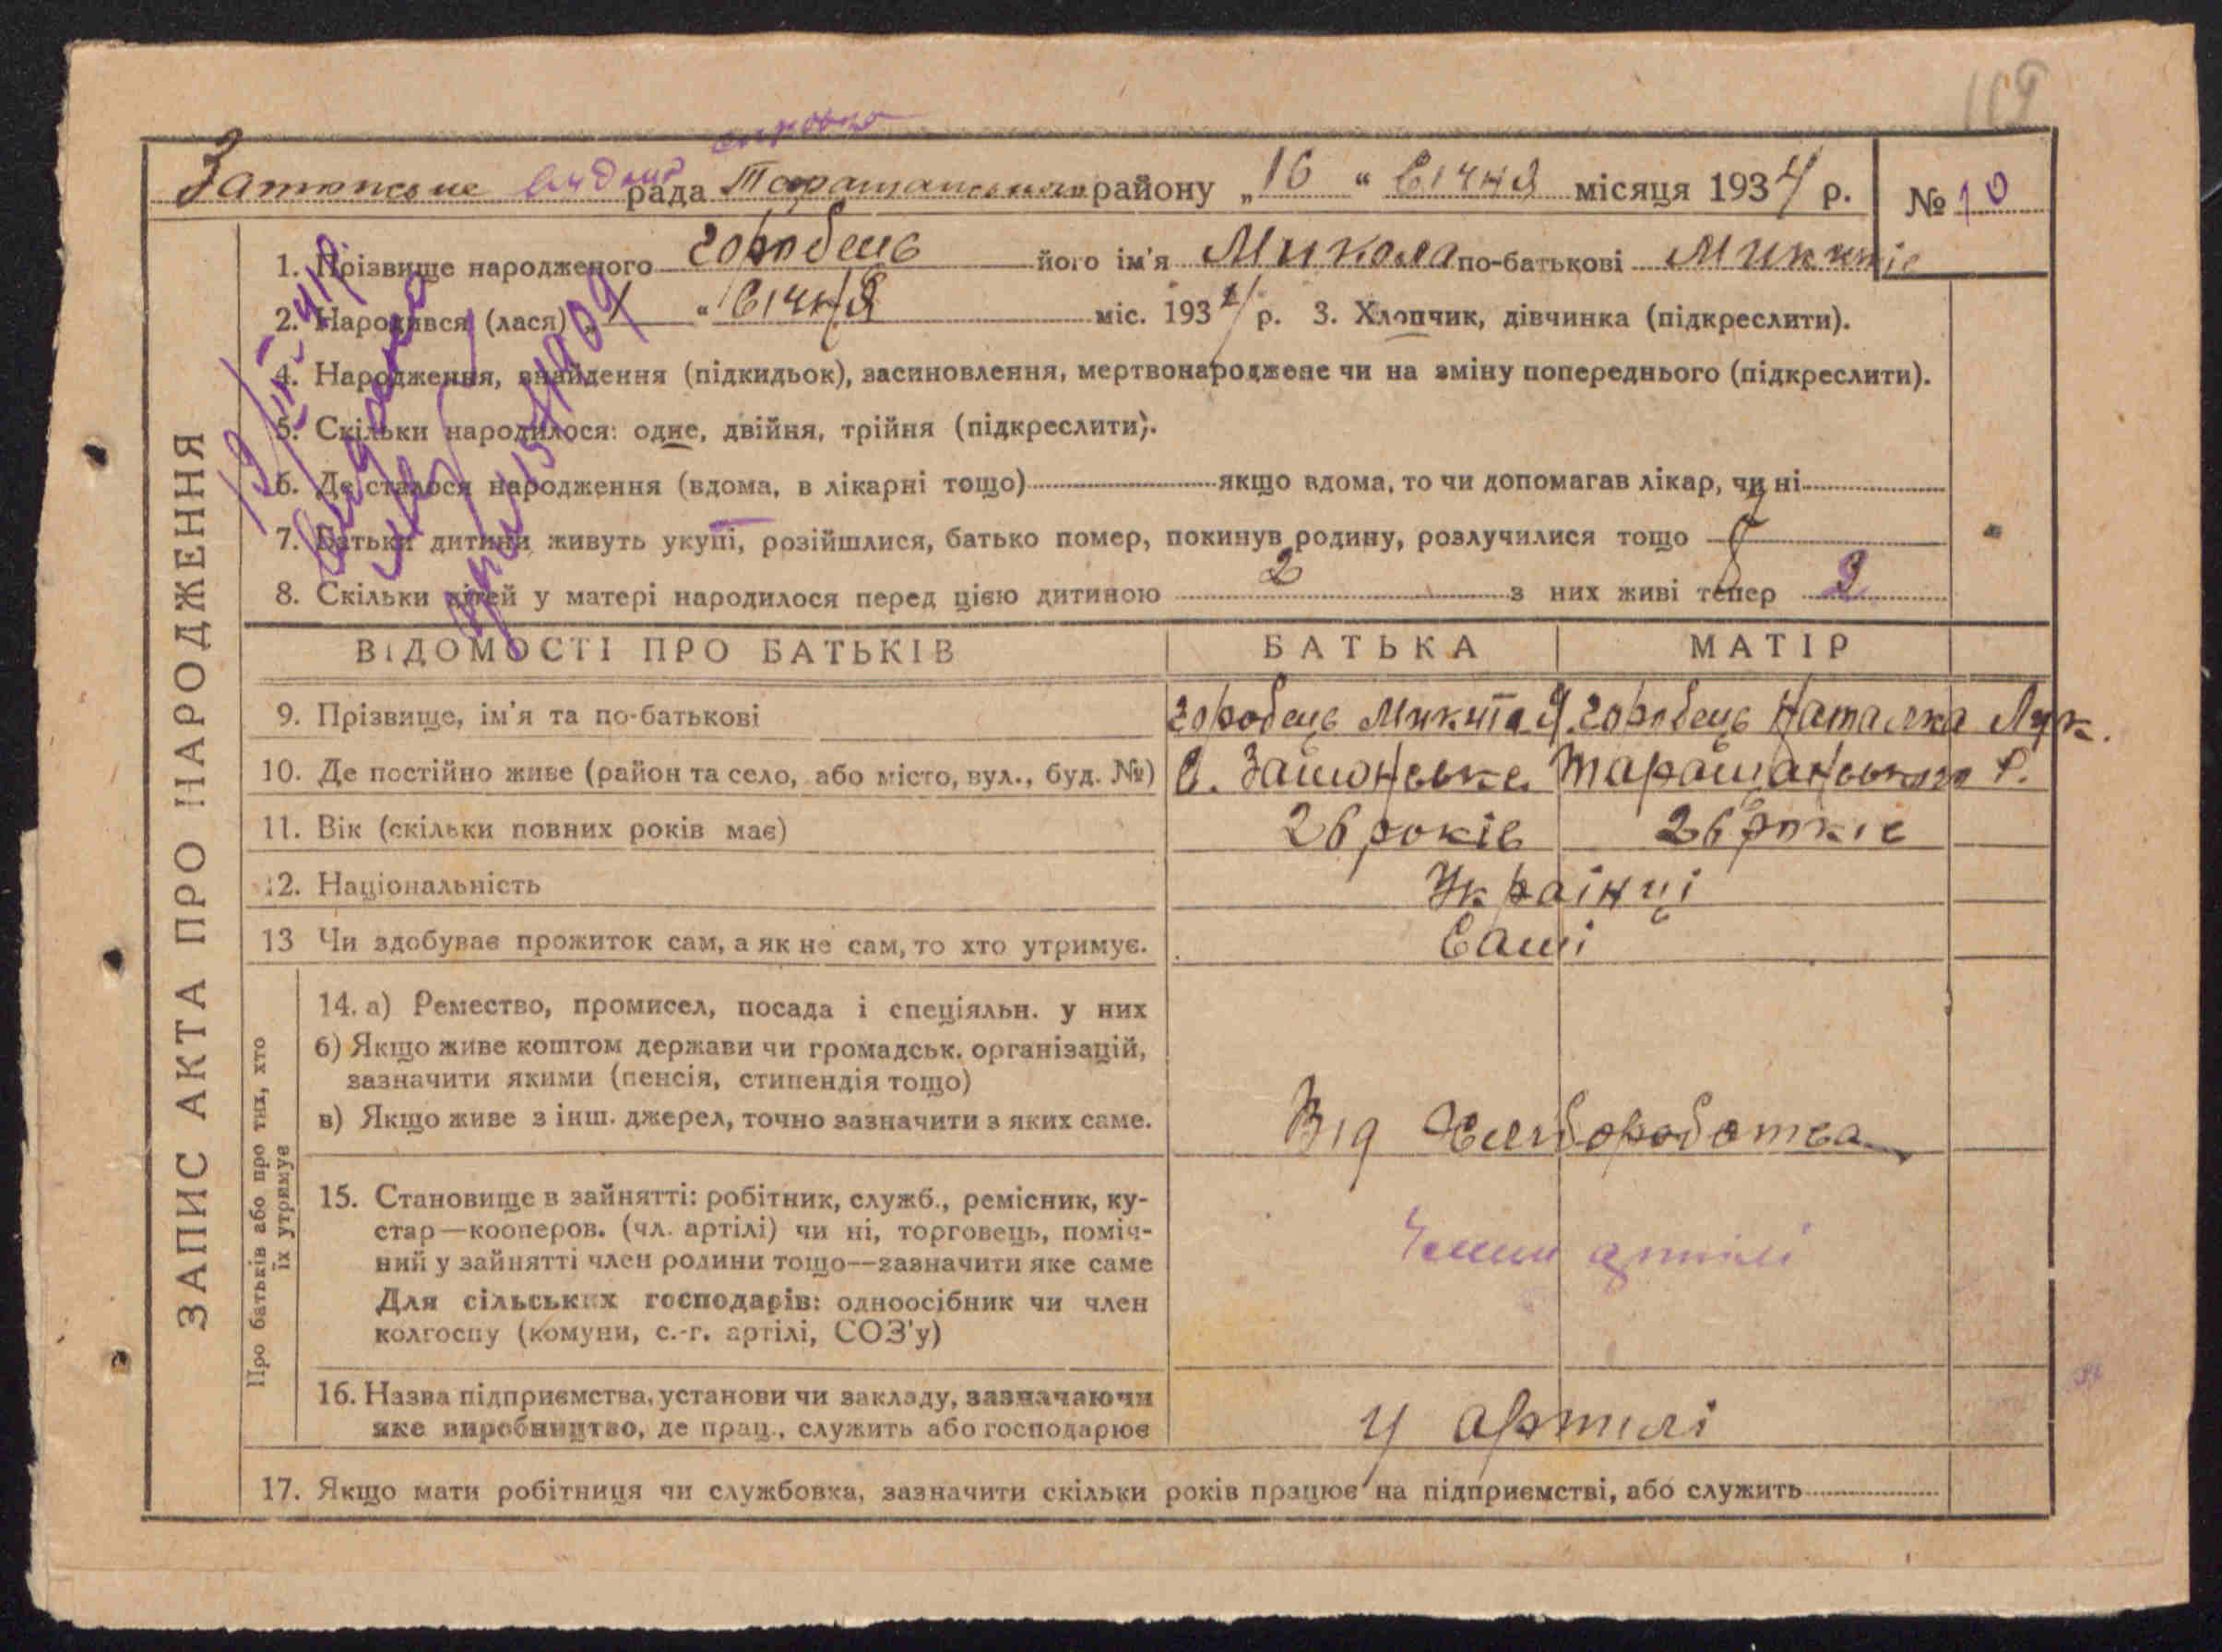 109
рада Таращанського району „16“ Січня місяця 1934 р. № 10
1. Прізвище народженого Горобець його ім'я Микола по-батькові Микитів
2. Народився (лася) „ “ Січня міс. 1934 р. 3. Хлопчик, дівчинка (підкреслити).
4. Народження, знайдення (підкидьок), засиновлення, мертвонароджене чи на зміну попереднього (підкреслити).
5. Скільки народилося: одне, двійня, трійня (підкреслити).
6. Де сталося народження (вдома, в лікарні тощо) якщо вдома, то чи допомагав лікар, чи ні
7. Батьки дитини живуть укупі, розійшлися, батько помер, покинув родину, розлучилися тощо
8. Скільки дітей у матері народилося перед цією дитиною 2 з них живі тепер 2
ЗАПИС АКТА ПРО НАРОДЖЕННЯ
ВІДОМОСТІ ПРО БАТЬКІВ БАТЬКА МАТІР
9. Прізвище, ім'я та по-батькові Горобець Микита Я. Горобець Наталка Лук.
10. Де постійно живе (район та село, або місто, вул., буд. №) С. Таращанського р.
11. Вік (скільки повних років має) 26 років 26 років
12. Національність Українці
13 Чи здобуває прожиток сам, а як не сам, то хто утримує. Самі
Про батьків або про тих, хто їх утримує
14. а) Ремество, промисел, посада і спеціяльн. у них
б) Якщо живе коштом держави чи громадськ. організацій,
зазначити якими (пенсія, стипендія тощо)
в) Якщо живе з інш. джерел, точно зазначити з яких саме. Від
15. Становище в зайнятті: робітник, служб., ремісник, ку-
стар—кооперов. (чл. артілі) чи ні, торговець, поміч-
ний у зайнятті член родини тощо—зазначити яке саме
Члени артілі
Для сільських господарів: одноосібник чи член
колгоспу (комуни, с.-г. артілі, СОЗ'у)
16. Назва підприємства, установи чи закладу, зазначаючи
яке виробництво, де прац., служить або господарює У артилі
17. Якщо мати робітниця чи службовка, зазначити скільки років працює на підприємстві, або служить